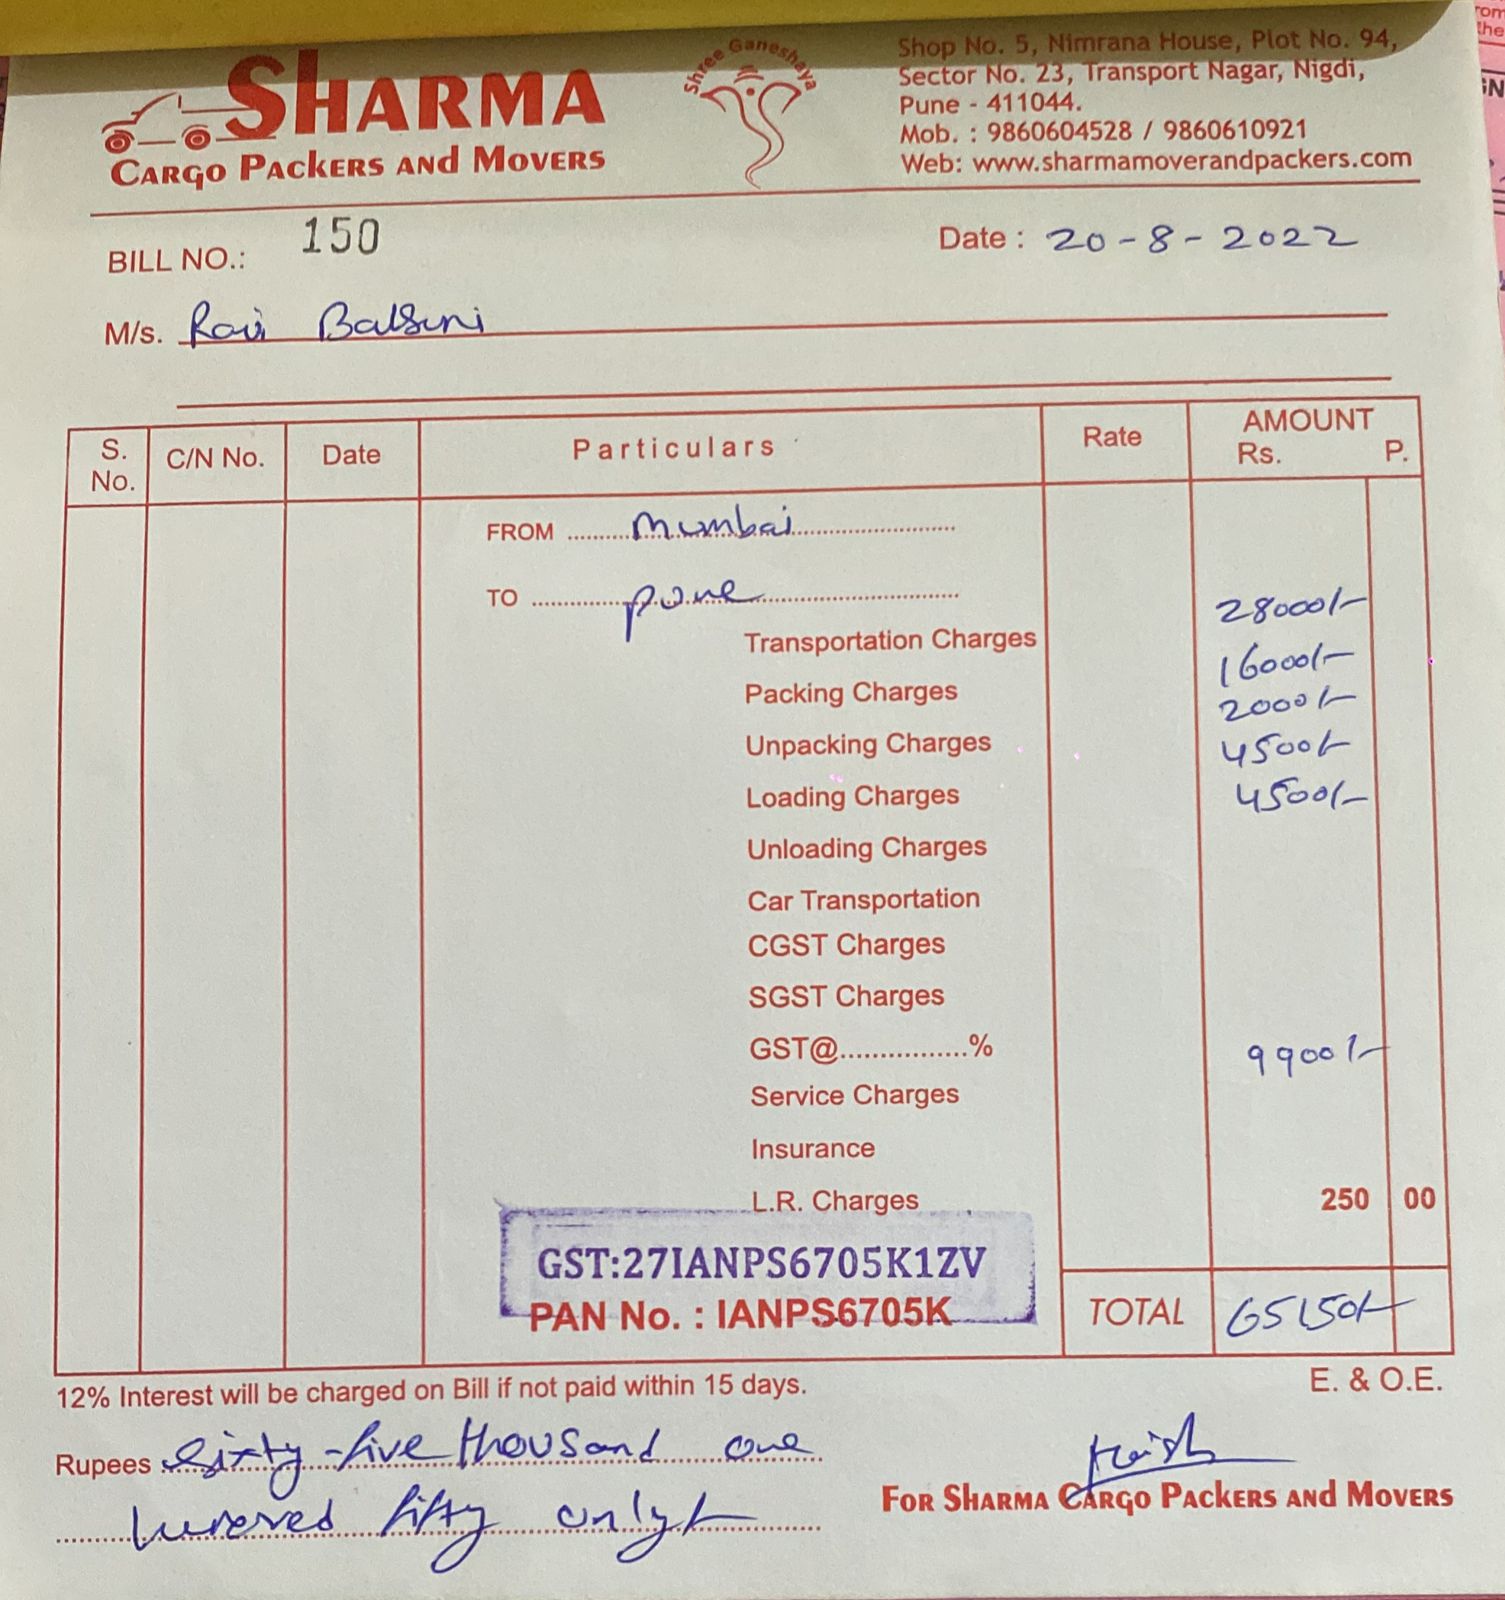 SHARMA
CARGO PACKERS AND MOVERS
Shree Ganeshaya
Shop No. 5, Nimrana House, Plot No. 94,
Sector No. 23, Transport Nagar, Nigdi,
Pune - 411044.
Mob. : 9860604528 / 9860610921
Web: www.sharmamoverandpackers.com
BILL NO.: 150
Date : 20-8-2022
M/s. Ravi
S. No. C/N No. Date Particulars Rate AMOUNT Rs. P.
FROM ........mumbai........
TO ........pune........
Transportation Charges 28000/-
Packing Charges 16000/-
Unpacking Charges 2000/-
Loading Charges 4500/-
Unloading Charges 4500/-
Car Transportation
CGST Charges
SGST Charges
GST@................% 9900/-
Service Charges
Insurance
L.R. Charges 250 00
GST:27IANPS6705K1ZV
PAN No. : IANPS6705K
TOTAL 65150/-
12% Interest will be charged on Bill if not paid within 15 days.
E. & O.E.
Rupees sixty-five thousand one
hundred fifty only/-
FOR SHARMA CARGO PACKERS AND MOVERS